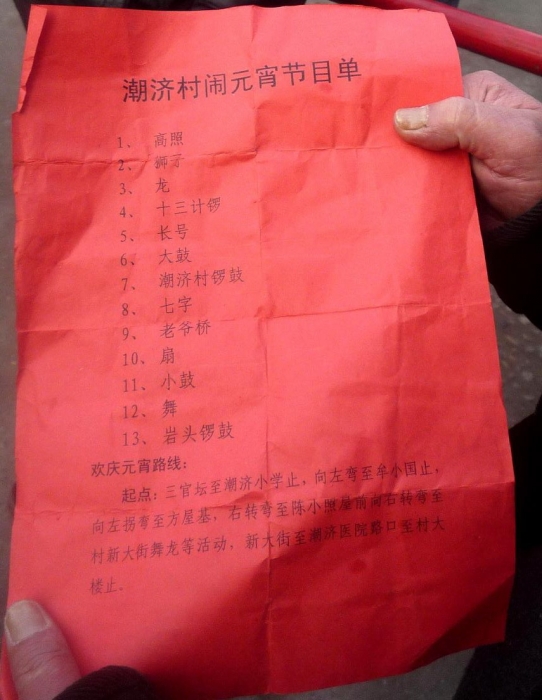 潮济村闹元宵节目单
1、 高照
2、 狮子
3、 龙
4、 十三计锣
5、 长号
6、 大鼓
7、 潮济村锣鼓
8、 七字
9、 老爷桥
10、 扇
11、 小鼓
12、 舞
13、 岩头锣鼓
欢庆元宵路线：
起点：三官坛至潮济小学止，向左弯至牟小国止，
向左拐弯至方屋基，右转弯至陈小照屋前向右转弯至
村新大街舞龙等活动，新大街至潮济医院路口至村大
楼止.